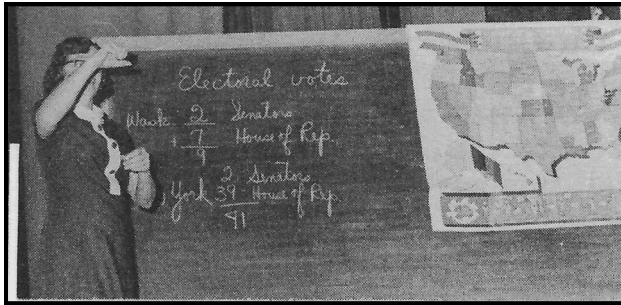 Electoral votes
Wash. 2 Senators
+ 7 House of Rep.
9
2 Senators
York 39 House of Rep.
41